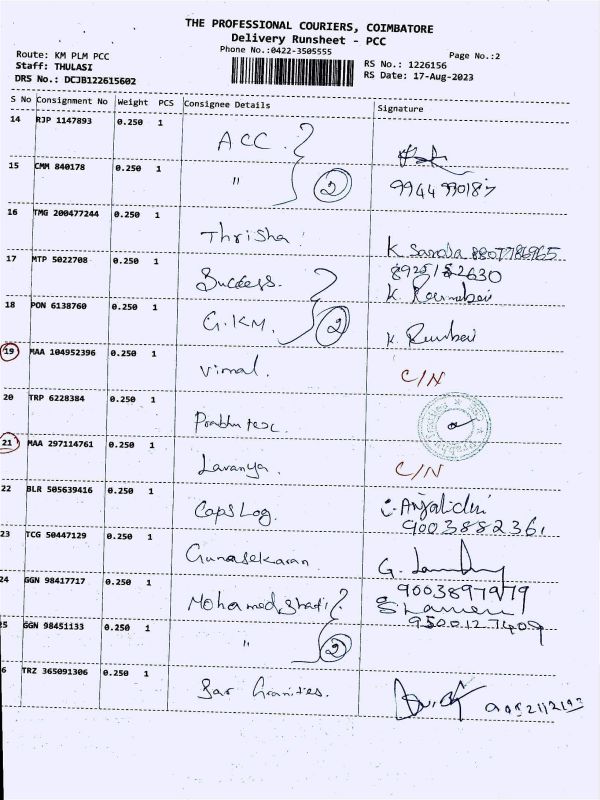 THE PROFESSIONAL COURIERS, COIMBATORE
Delivery Runsheet - PCC
Phone No.:0422-3505555
Page No.:2
Route: KM PLM PCC
Staff: THULASI
DRS No.: DCJB122615602
RS No.: 1226156
RS Date: 17-Aug-2023
S No Consignment No Weight PCS Consignee Details Signature
14 RJP 1147893 0.250 1 ACC.
15 CMM 840178 0.250 1 " 2 9944990187
16 TMG 200477244 0.250 1 Thrisha K Saroja 8807786965
17 MTP 5022708 0.250 1 Success. 8925152630
18 PON 6138760 0.250 1 G.KM. 2
19 MAA 104952396 0.250 1 Vimal. C/N
20 TRP 6228384 0.250 1 Prabhu
21 MAA 297114761 0.250 1 Lavanya. C/N
22 BLR 505639416 0.250 1 Caps Log. 9003882361
23 TCG 50447129 0.250 1 Gunasekaran G.
24 GGN 98417717 0.250 1 Mohamed 9003897979
25 GGN 98451133 0.250 1 " 2 9500127409
6 TRZ 365091306 0.250 1